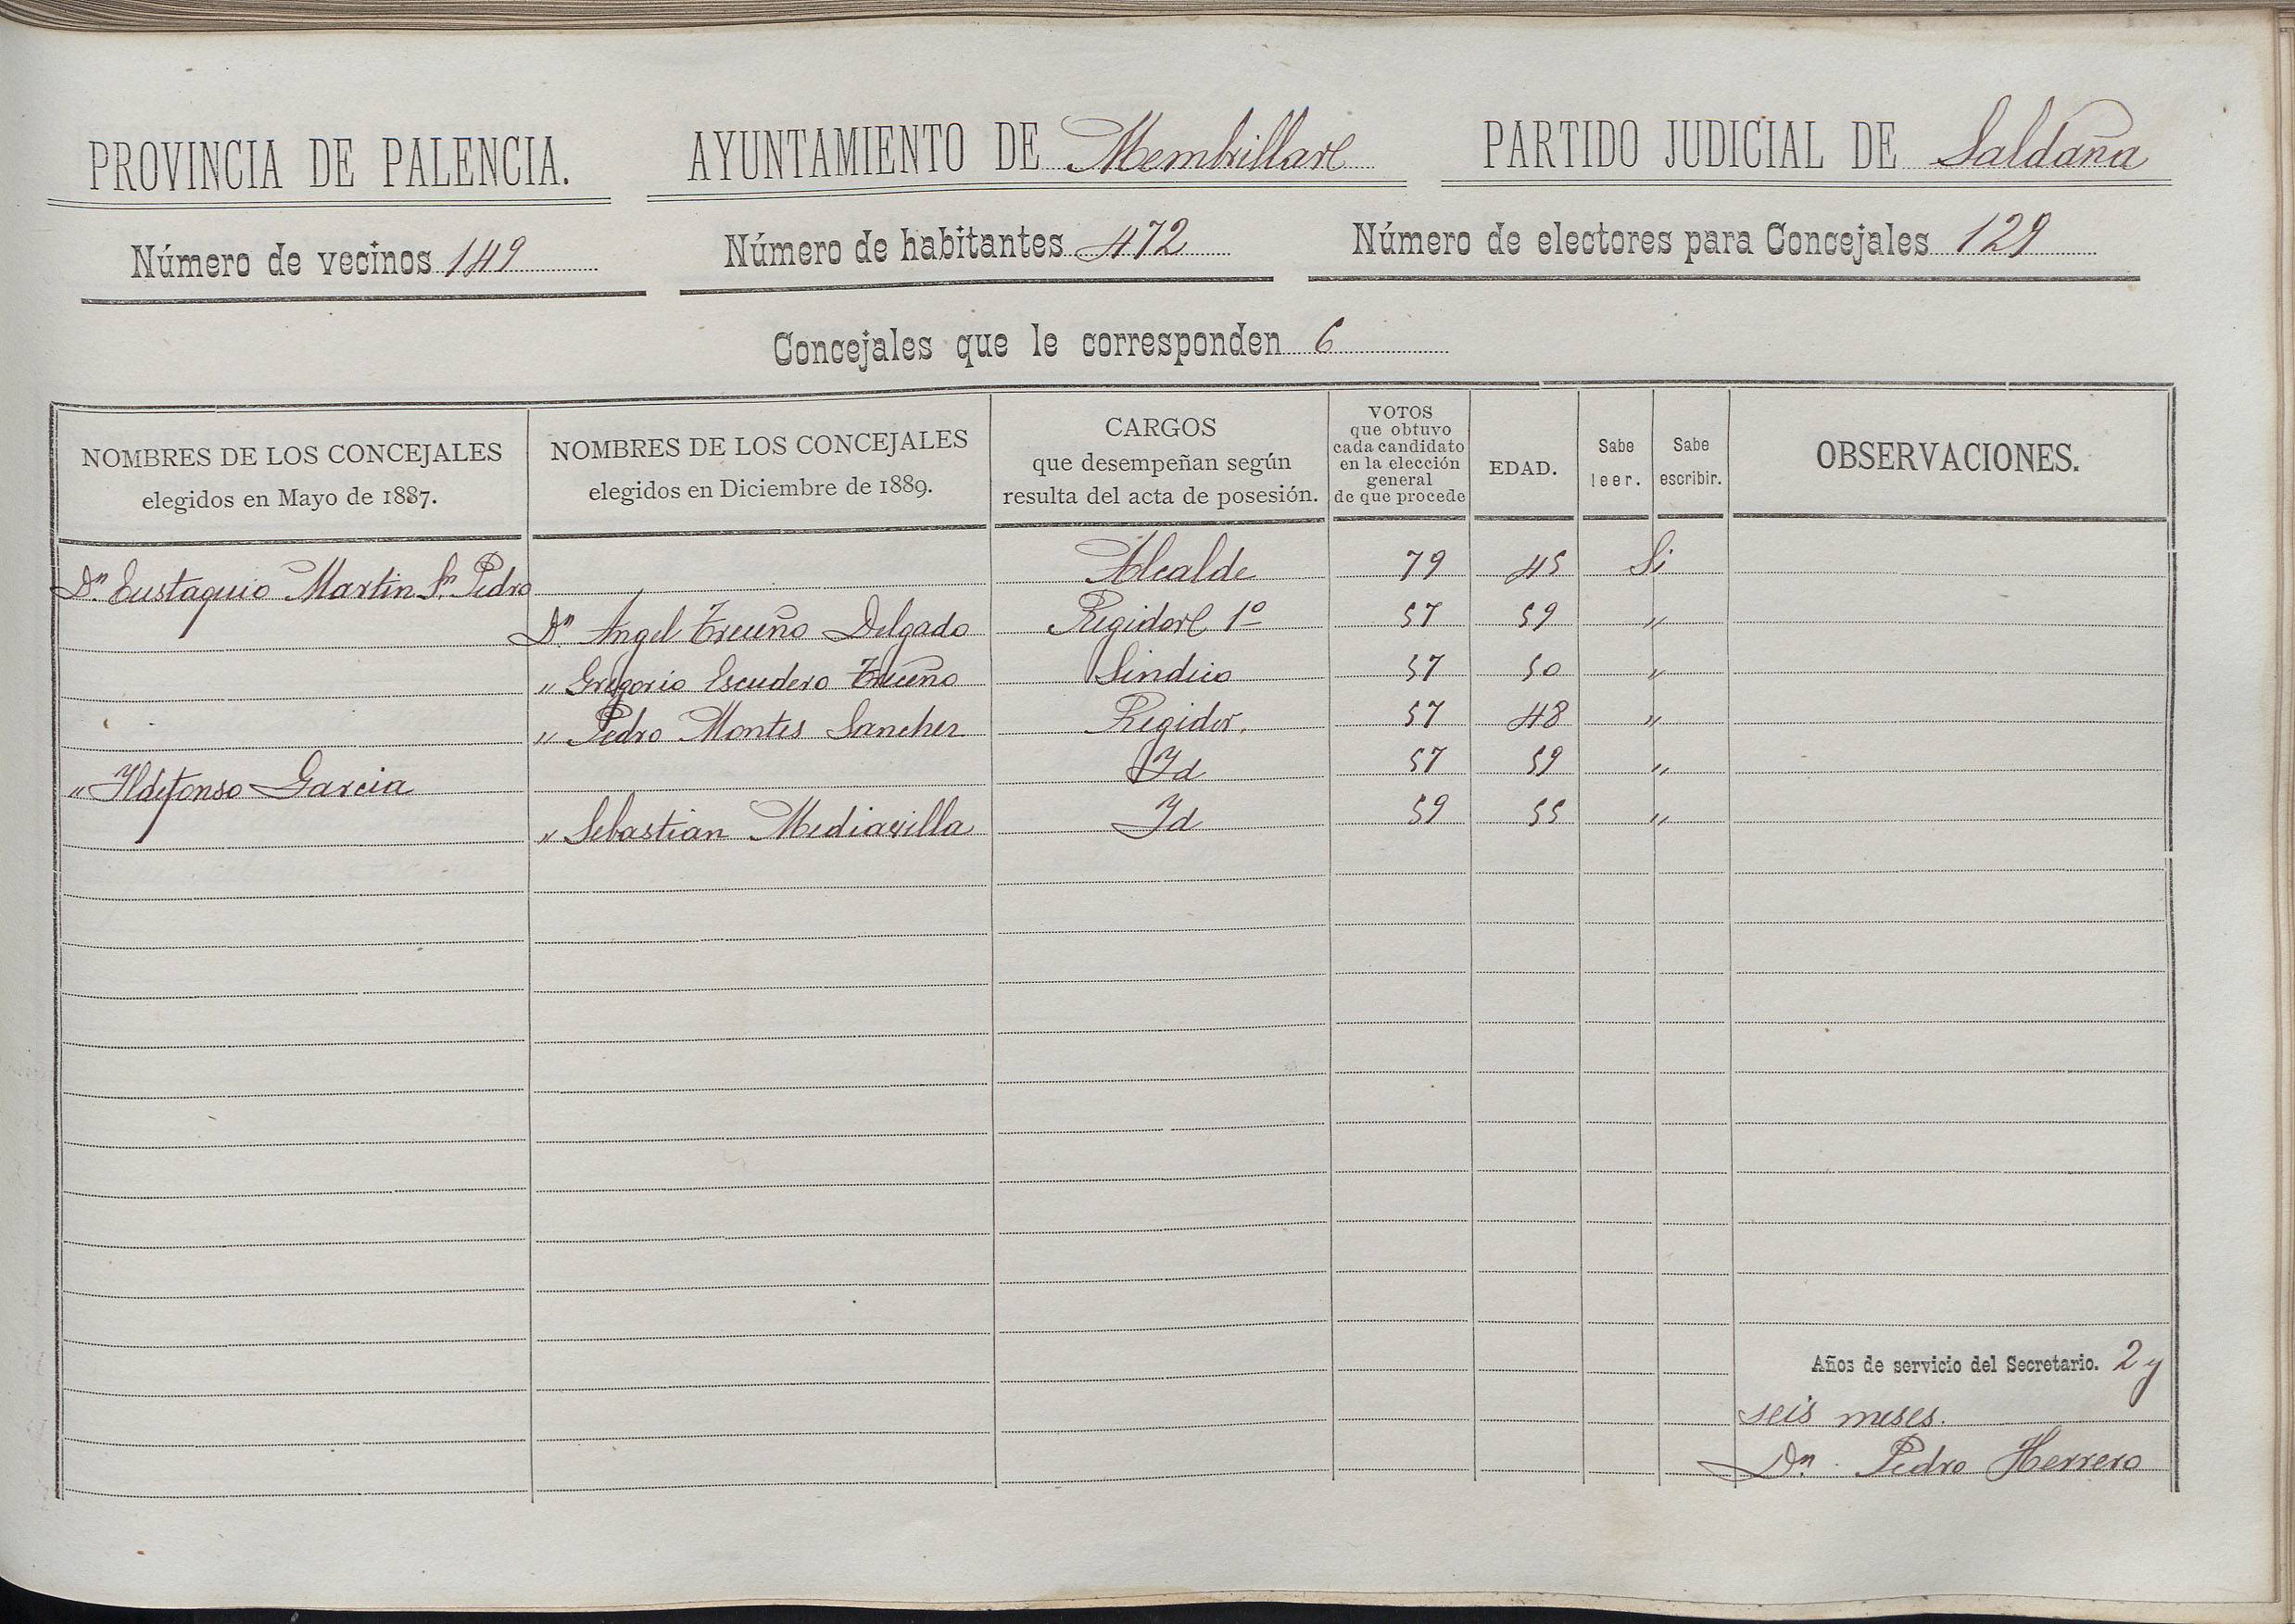 PROVINCIA DE PALENCIA. AYUNTAMIENTO DE Membrillar PARTIDO JUDICIAL DE Saldaña
Número de vecinos 149 Número de habitantes 472 Número de electores para Concejales 129
Concejales que le corresponden 6
NOMBRES DE LOS CONCEJALES
elegidos en Mayo de 1887.
NOMBRES DE LOS CONCEJALES
elegidos en Diciembre de 1889.
CARGOS
que desempeñan según
resulta del acta de posesión.
VOTOS
que obtuvo
cada candidato
en la elección
general
de que procede
EDAD.
Sabe
leer.
Sabe
escribir.
OBSERVACIONES.
Dn. Eustaquio Martin Sn. Pedro Alcalde 79 45 Si
Dn. Angel Treceño Delgado Regidor 1º 57 59 "
" Gregorio Escudero Treceño Sindico 57 50 "
" Pedro Montes Sanchez Regidor. 57 48 "
" Yldefonso Garcia Yd 57 59 "
" Sebastian Mediavilla Yd 59 55 "
Años de servicio del Secretario. 2 y
seis meses.
Dn. Pedro Herrero